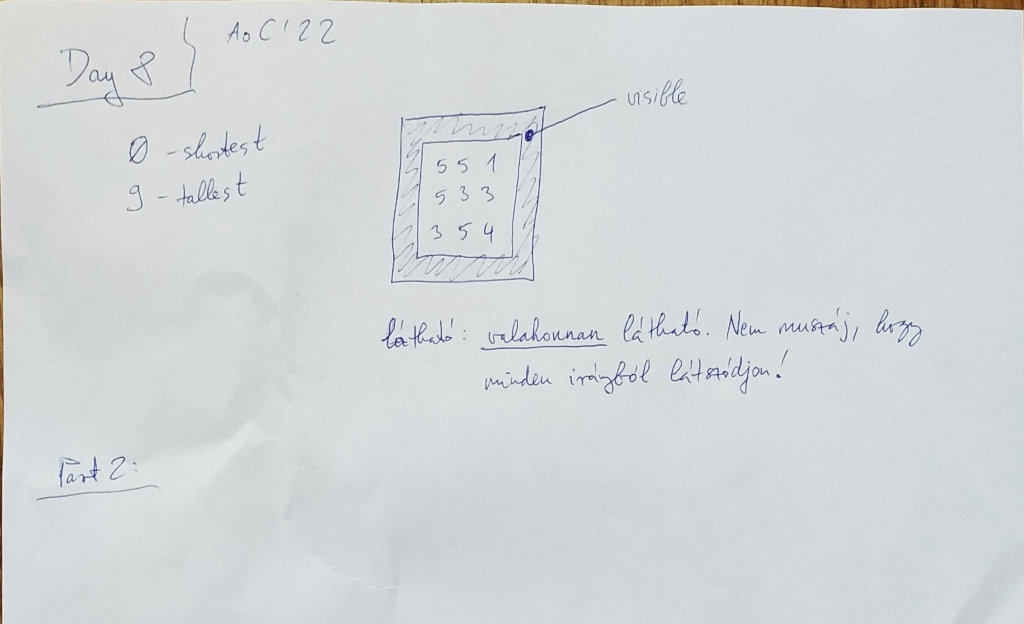 Day 8
AoC'22
0 - shortest
9 - tallest
visible
5 5 1
5 3 3
3 5 4
látható: valahonnan látható. Nem muszáj, hogy
minden irányból látszódjon!
Part 2: